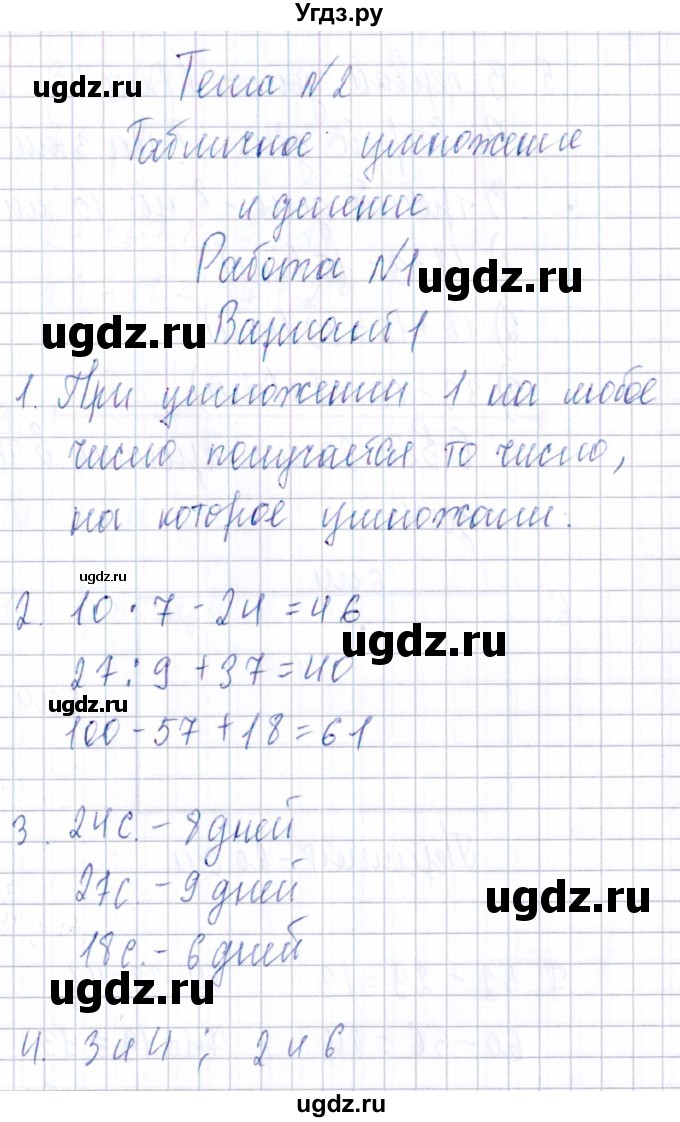 Угдз.ру
ugdz.ru
Тема №2
Табличное умножение
и деление
Работа №1
ugdz.ru
ugdz.ru
Вариант 1
1. При умножении 1 на любое
число получается то число,
на которое умножали.
ugdz.ru
2. 10 · 7 - 24 = 46
ugdz.ru
27 : 9 + 37 = 40
ugdz.ru
100 - 57 + 18 = 61
3. 24с. - 8 дней
27с. - 9 дней
ugdz.ru
18с. - 6 дней
ugdz.ru
4. 3 и 4 ; 2 и 6
ugdz.ru